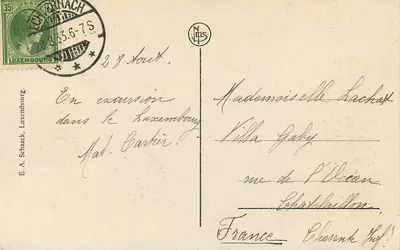 35
LUXEMBOURG
ECHTERNACH
33.6-7S
NELS
28 Aout.
En excursion
dans le Luxembourg
Mat. Cartier.
E. A. Schaack, Luxembourg.
Mademoiselle Lachat
Villa Gaby
rue de l'Océan
Chatelaillon
France Charente Inf.